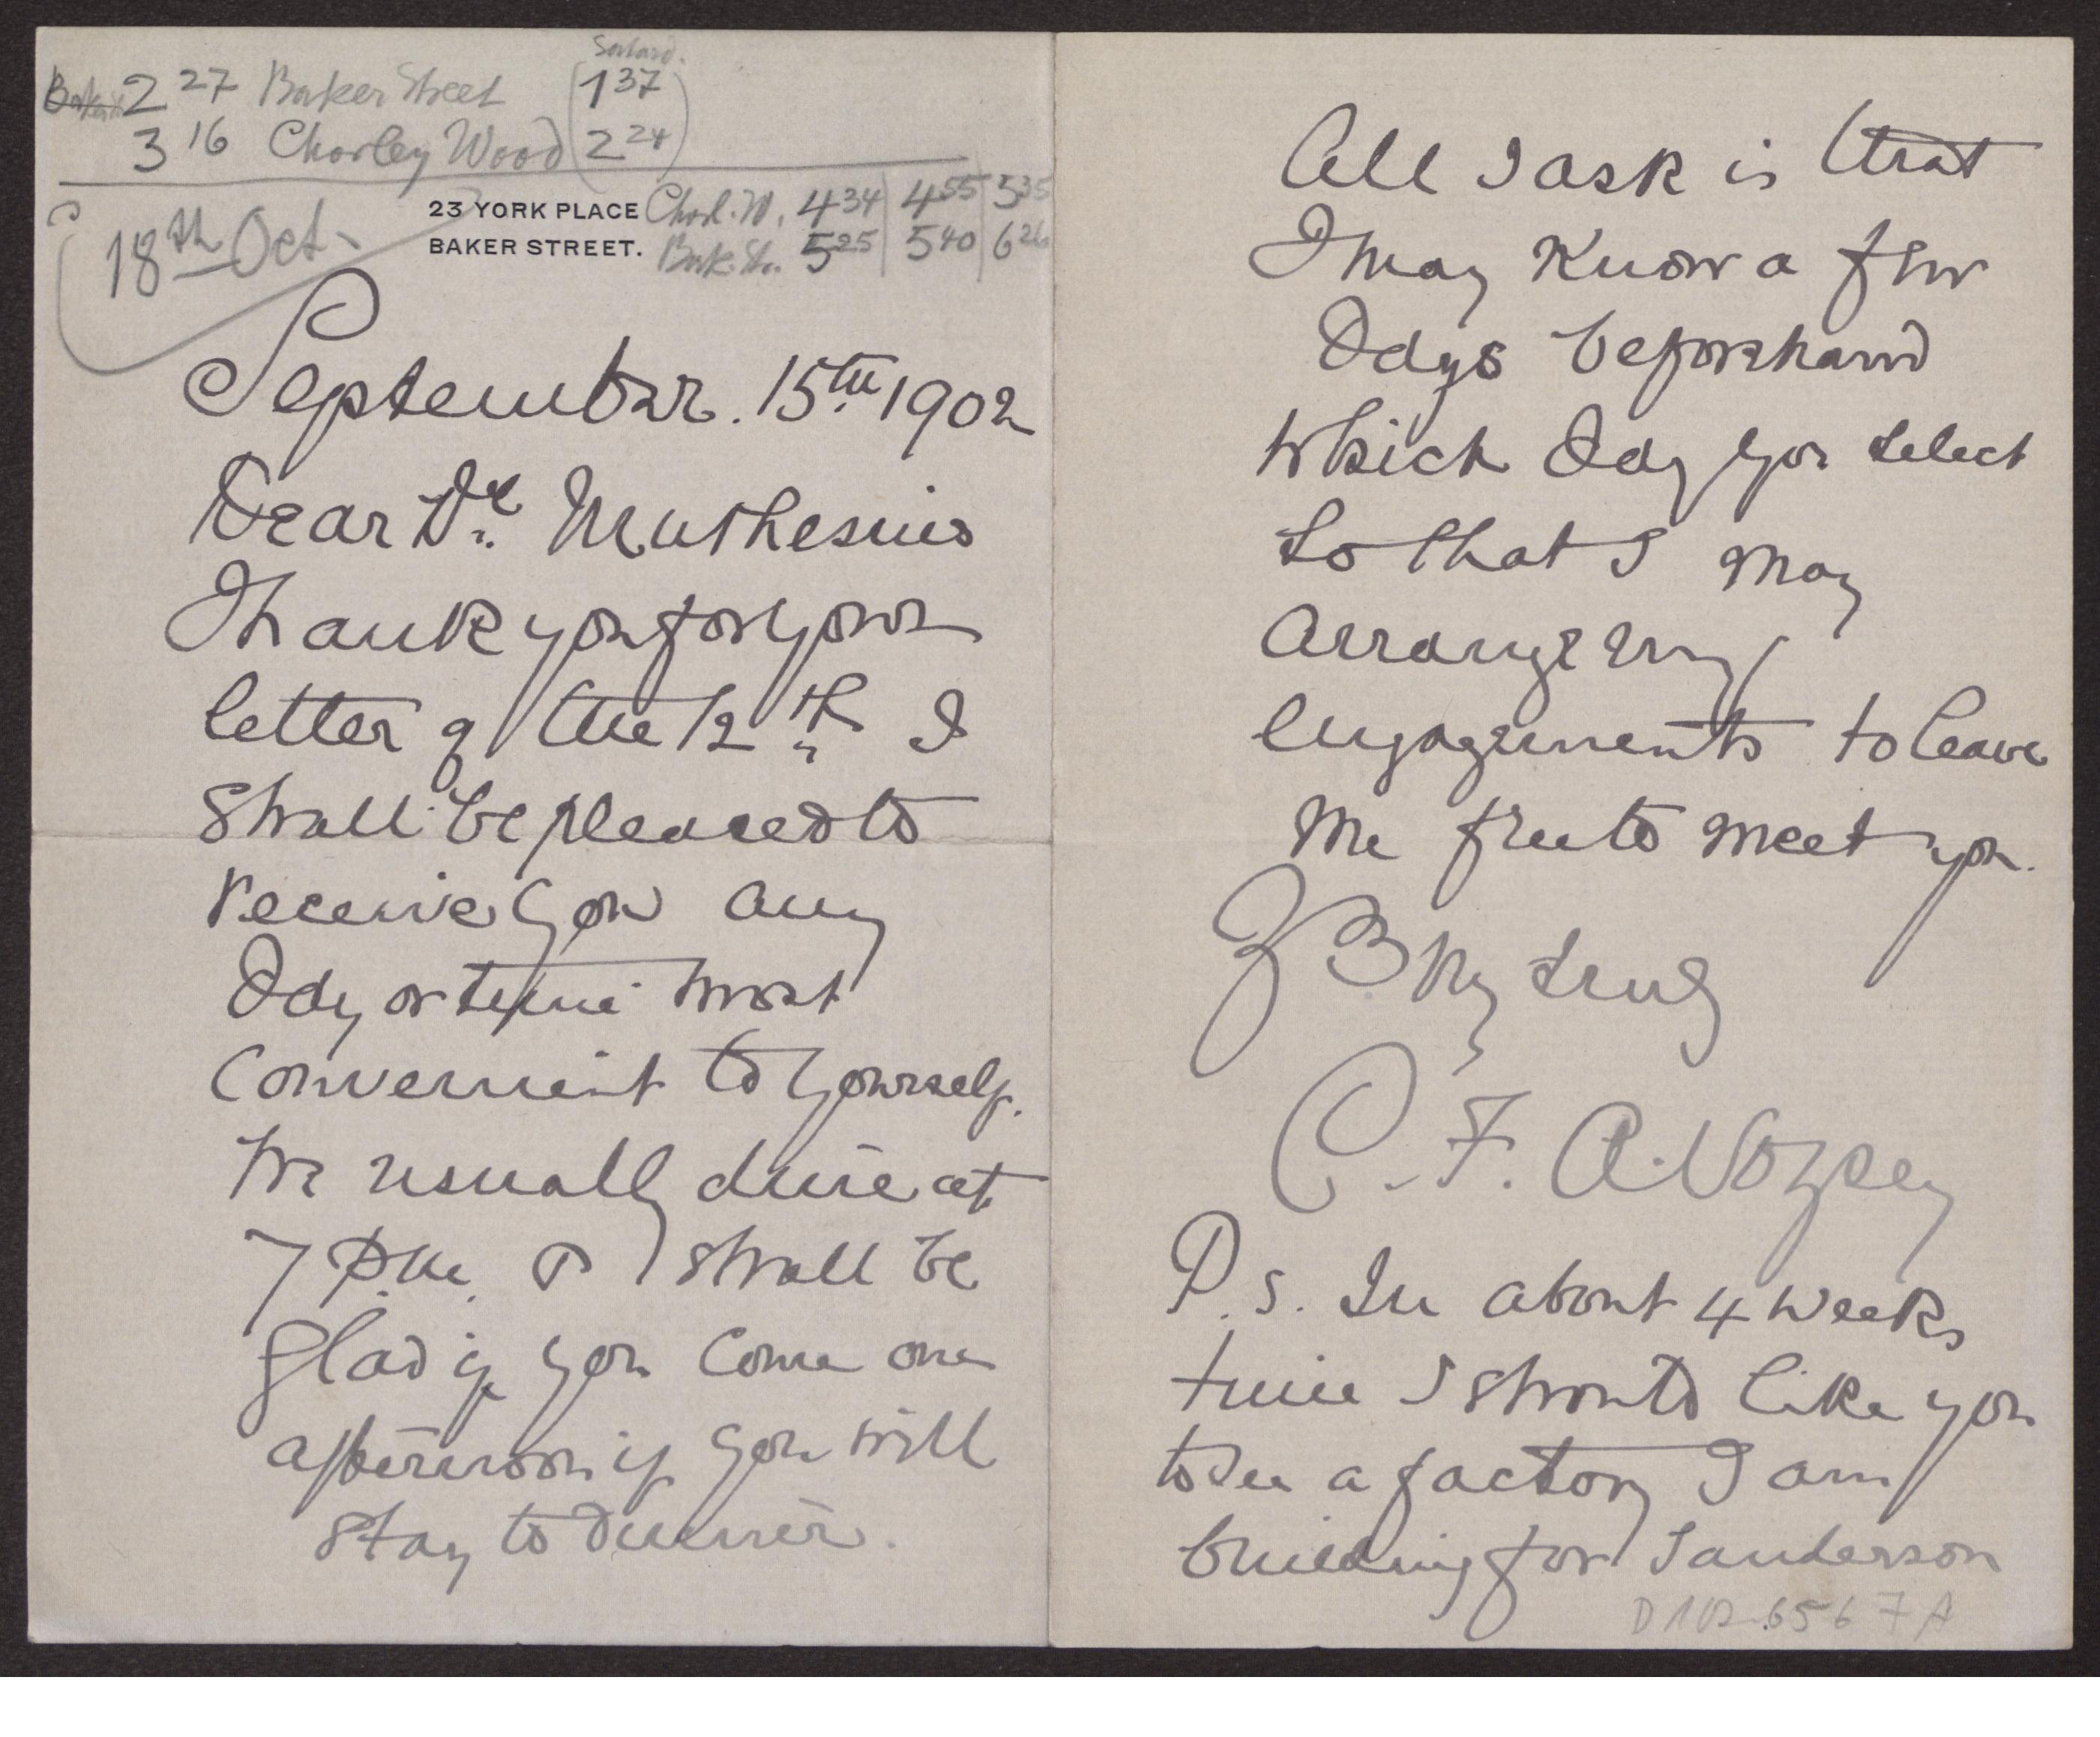 Saturd.
2 27 Baker Street (1 37
3 16 Chorley Wood 2 24)
18th Oct.
23 YORK PLACE Chorl. W. 4 34 | 4 55 | 5 35
BAKER STREET. Bak. Str. 5 25 | 5 40 | 6 26
September. 15th 1902
Dear Dr. Muthesius
Thank you for your
letter of the 12th I
shall be pleased to
receive you any
day or time most
convenient to yourself.
We usually dine at
7 p.m. & shall be
glad if you come one
afternoon if you will
stay to dinner.
All I ask is that
I may know a few
days beforehand
which day you select
so that I may
arrange my
engagements to leave
me free to meet you.
Yours Very truly
C. F. A. Voysey
P.S. In about 4 weeks
time I should like you
to see a factory I am
building for Sanderson
D 102-6567A